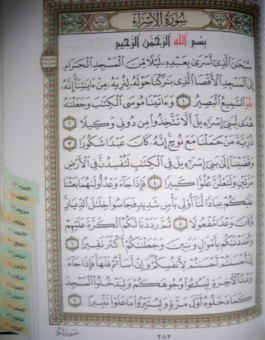 سُورَةُ الْإِسْرَاءِ
بِسْمِ اللَّهِ الرَّحْمَٰنِ الرَّحِيمِ
سُبْحَٰنَ الَّذِي أَسْرَىٰ بِعَبْدِهِ لَيْلًا مِّنَ الْمَسْجِدِ الْحَرَامِ
إِلَى الْمَسْجِدِ الْأَقْصَا الَّذِي بَٰرَكْنَا حَوْلَهُ لِنُرِيَهُ مِنْ ءَايَٰتِنَا إِنَّهُ
هُوَ السَّمِيعُ الْبَصِيرُ ١ وَءَاتَيْنَا مُوسَى الْكِتَٰبَ وَجَعَلْنَٰهُ
هُدًى لِّبَنِي إِسْرَٰءِيلَ أَلَّا تَتَّخِذُوا مِن دُونِي وَكِيلًا ٢
ذُرِّيَّةَ مَنْ حَمَلْنَا مَعَ نُوحٍ إِنَّهُ كَانَ عَبْدًا شَكُورًا ٣
وَقَضَيْنَا إِلَىٰ بَنِي إِسْرَٰءِيلَ فِي الْكِتَٰبِ لَتُفْسِدُنَّ فِي الْأَرْضِ
مَرَّتَيْنِ وَلَتَعْلُنَّ عُلُوًّا كَبِيرًا ٤ فَإِذَا جَاءَ وَعْدُ أُولَىٰهُمَا بَعَثْنَا
عَلَيْكُمْ عِبَادًا لَّنَا أُولِي بَأْسٍ شَدِيدٍ فَجَاسُوا خِلَٰلَ الدِّيَارِ
وَكَانَ وَعْدًا مَّفْعُولًا ٥ ثُمَّ رَدَدْنَا لَكُمُ الْكَرَّةَ عَلَيْهِمْ
وَأَمْدَدْنَٰكُم بِأَمْوَٰلٍ وَبَنِينَ وَجَعَلْنَٰكُمْ أَكْثَرَ نَفِيرًا ٦
إِنْ أَحْسَنتُمْ أَحْسَنتُمْ لِأَنفُسِكُمْ وَإِنْ أَسَأْتُمْ فَلَهَا فَإِذَا جَاءَ
وَعْدُ الْءَاخِرَةِ لِيَسُۥٓـُٔوا وُجُوهَكُمْ وَلِيَدْخُلُوا الْمَسْجِدَ
كَمَا دَخَلُوهُ أَوَّلَ مَرَّةٍ وَلِيُتَبِّرُوا مَا عَلَوْا تَتْبِيرًا ٧
٢٨٢